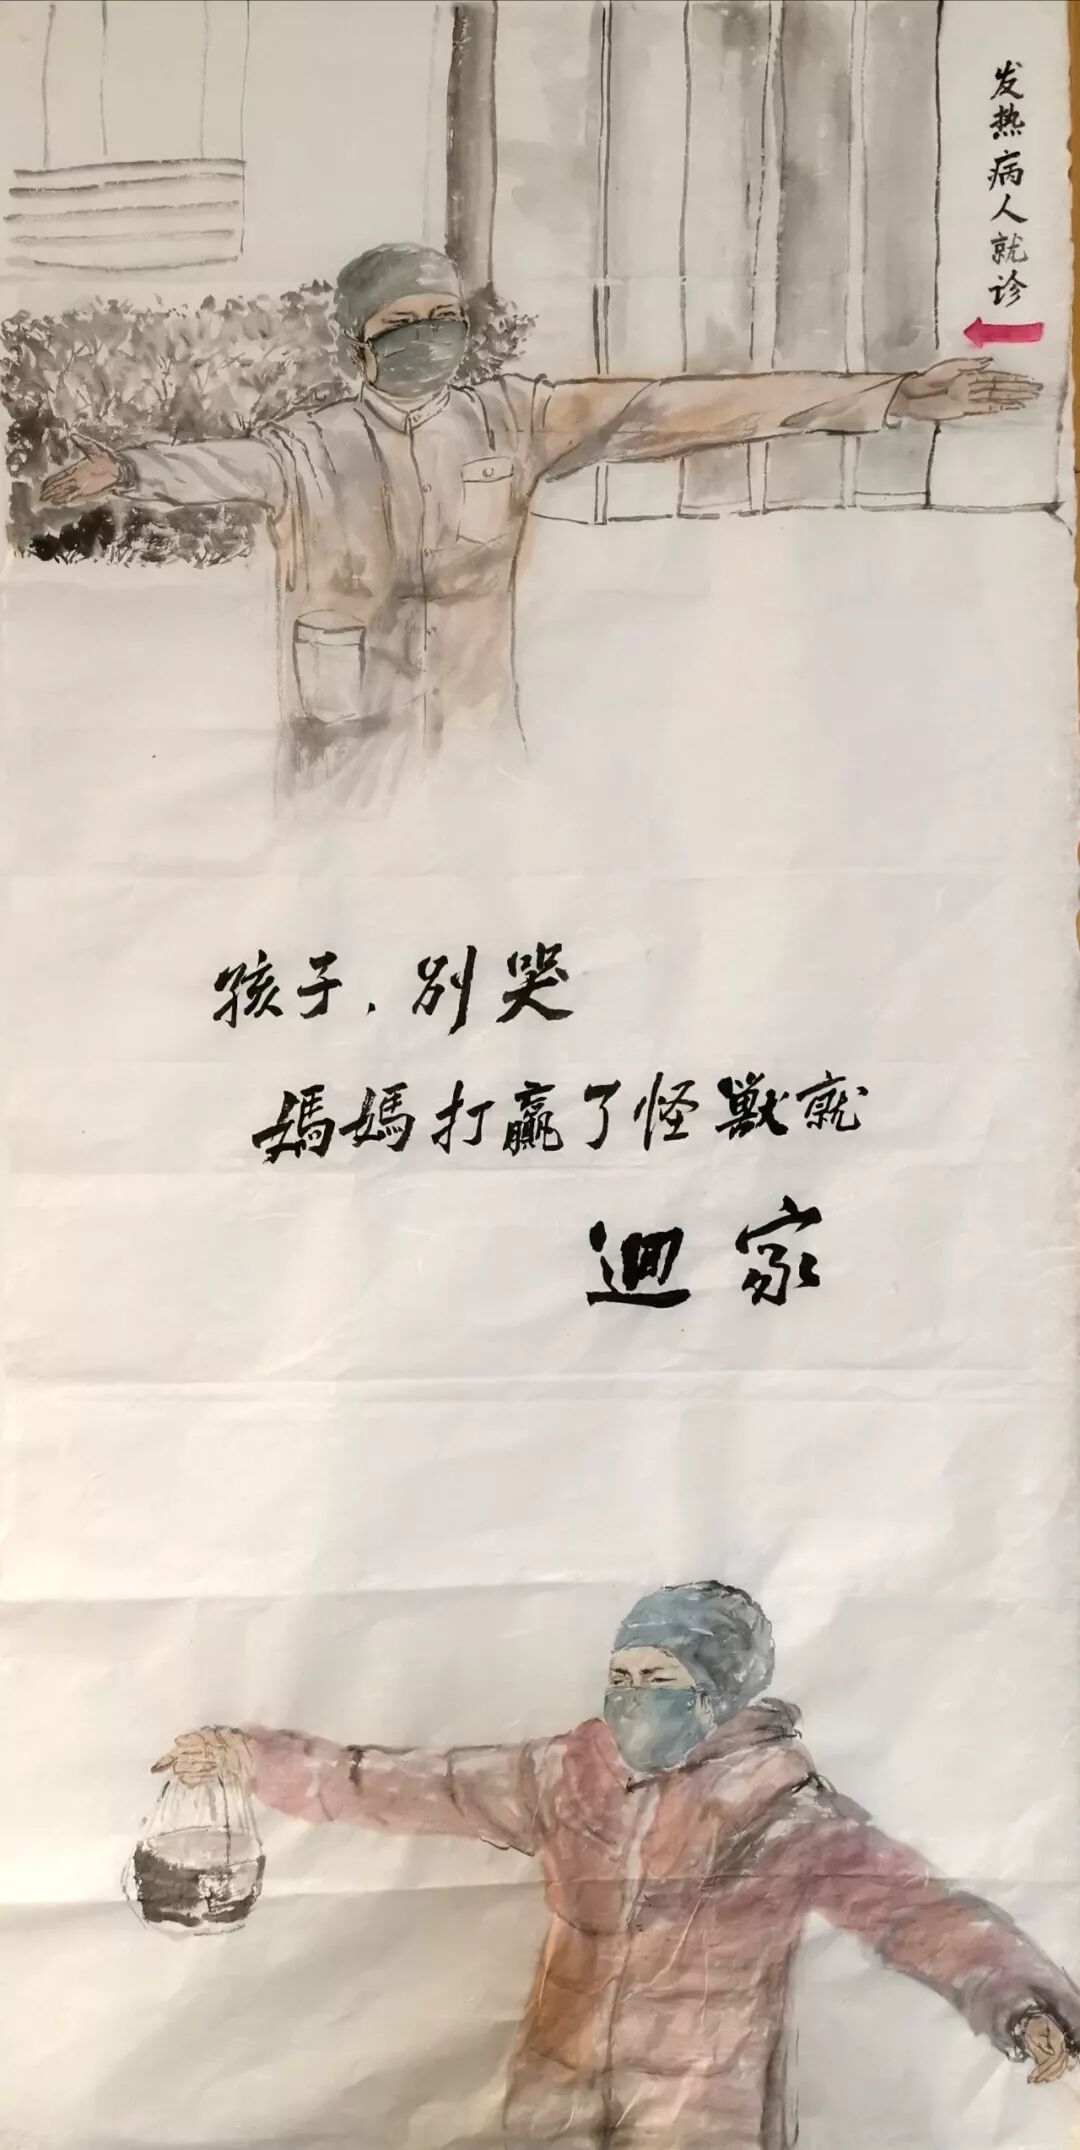 发热病人就诊
孩子，别哭
媽媽打赢了怪獸就
迴家